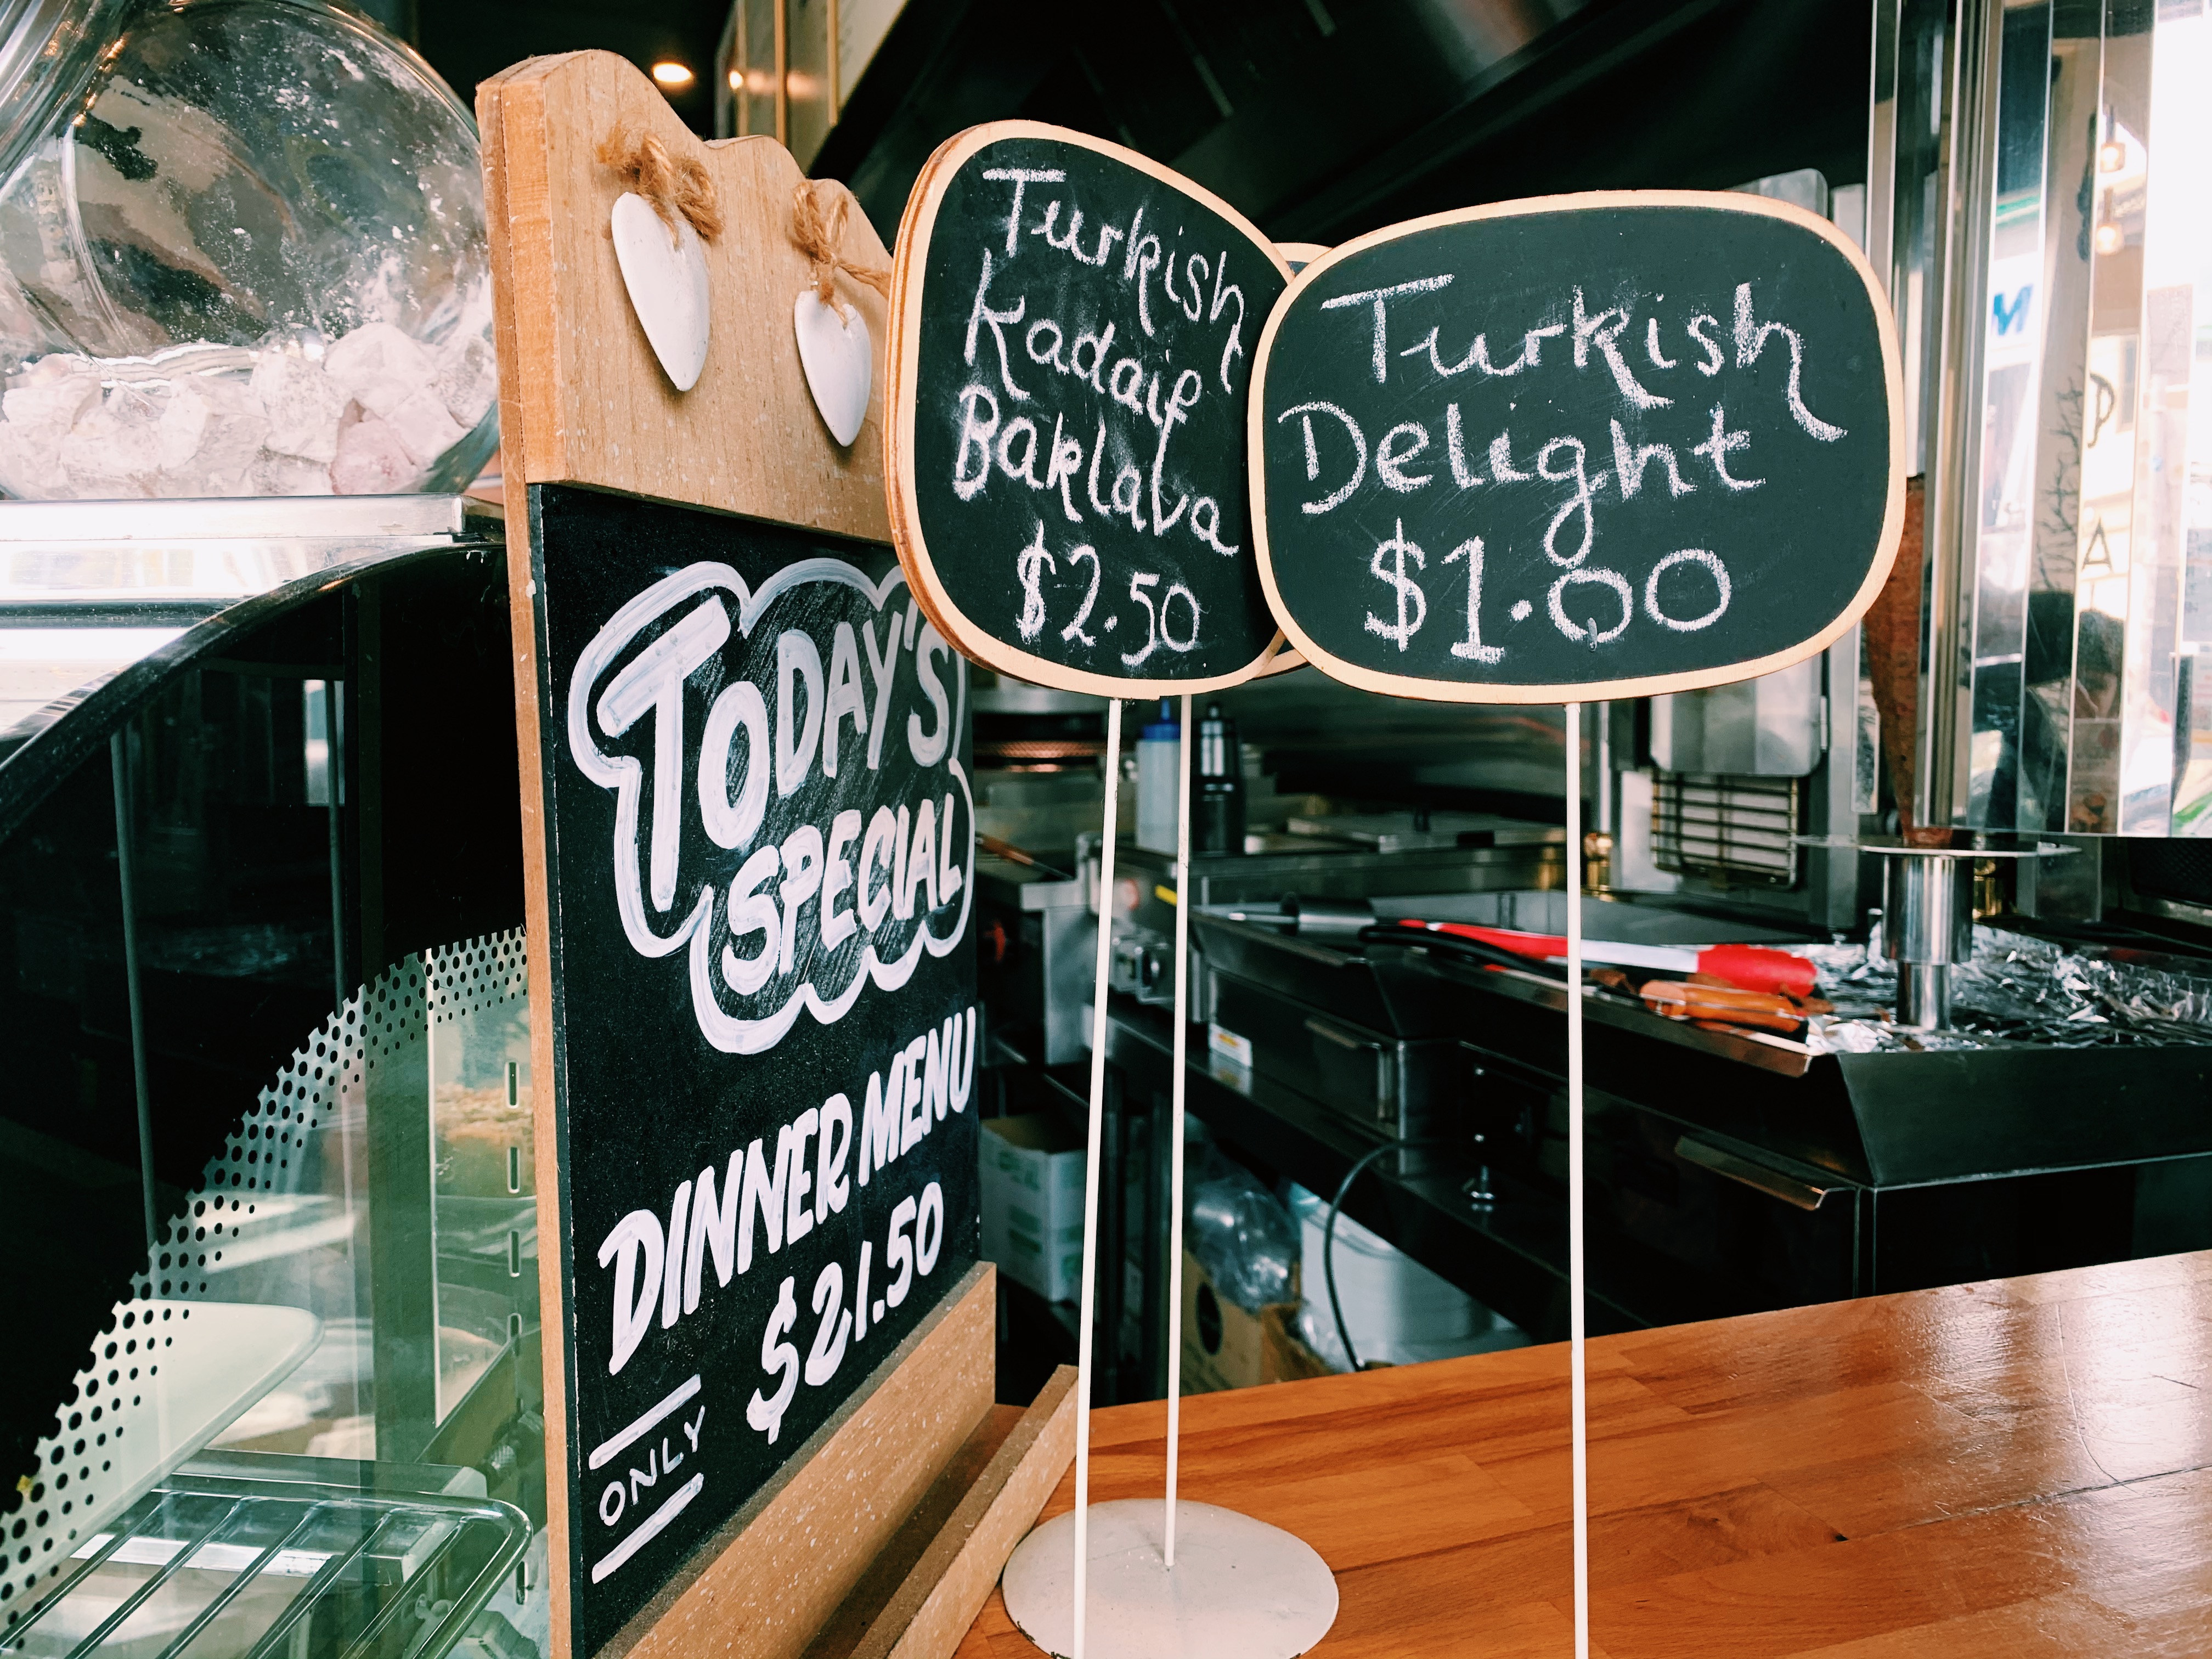 TODAY'S
SPECIAL
DINNER MENU
$21.50
ONLY
Turkish
Kadaif
Baklava
$2.50
Turkish
Delight
$1.00
M
P
A